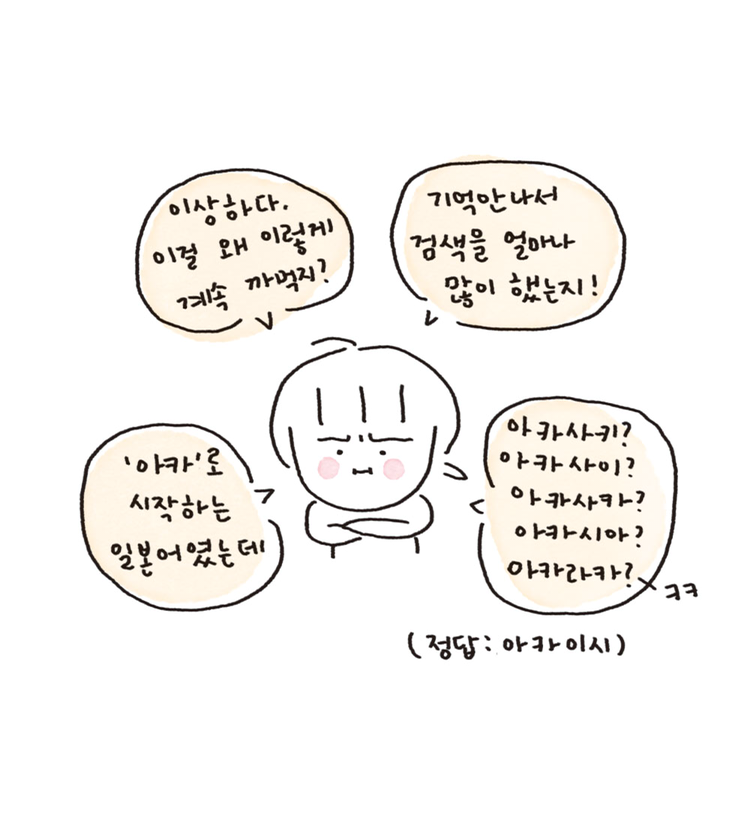 이상하다.
이걸 왜 이렇게
계속 까먹지?
기억안나서
검색을 얼마나
많이 했는지!
'아카'로
시작하는
일본어였는데
아카사키?
아카사이?
아카사카?
아카시아?
아카라카?
ㅋㅋ
(정답: 아카이시)